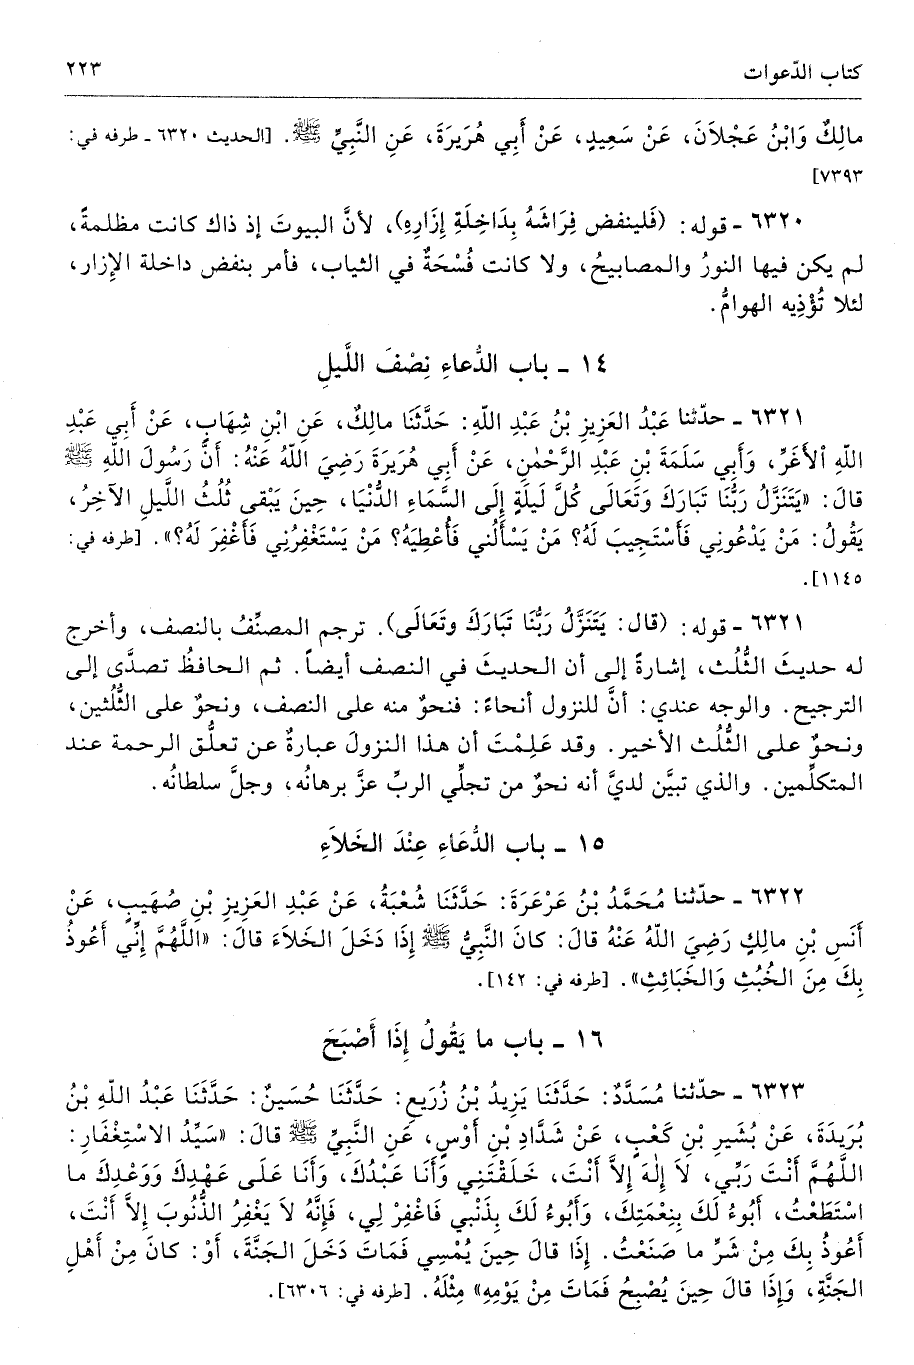 كتاب الدّعوات ٢٢٣
مالِكٌ وَابْنُ عَجْلاَنَ، عَنْ سَعِيدٍ، عَنْ أَبِي هُرَيرَةَ، عَنِ النَّبِيِّ ﷺ. [الحديث ٦٣٢٠ ـ طرفه في:
٧٣٩٣]
٦٣٢٠ ـ قوله: (فَلينفض فِرَاشَهُ بِدَاخِلَةِ إِزَارِهِ)، لأنَّ البيوتَ إذ ذاك كانت مظلمةً،
لم يكن فيها النورُ والمصابيحُ، ولا كانت فُسْحَةٌ في الثياب، فأمر بنفض داخلة الإِزار،
لئلا تُؤْذِيه الهوامُّ.
١٤ ـ باب الدُّعاءِ نِصْفَ اللَّيلِ
٦٣٢١ ـ حدّثنا عَبْدُ العَزِيزِ بْنُ عَبْدِ اللّهِ: حَدَّثَنَا مالِكٌ، عَنِ ابْنِ شِهَابٍ، عَنْ أَبِي عَبْدِ
اللّهِ ٱلأَغَرِّ، وَأَبِي سَلَمَةَ بْنِ عَبْدِ الرَّحْمٰنِ، عَنْ أَبِي هُرَيرَةَ رَضِيَ اللّهُ عَنْهُ: أَنَّ رَسُولَ اللّهِ ﷺ
قالَ: «يَتَنَزَّلُ رَبُّنَا تَبَارَكَ وَتَعَالَى كُلَّ لَيلَةٍ إِلَى السَّمَاءِ الدُّنْيَا، حِينَ يَبْقى ثُلُثُ اللَّيلِ الآخِرُ،
يَقُولُ: مَنْ يَدْعُونِي فَأَسْتَجِيبَ لَهُ؟ مَنْ يَسْأَلُني فَأُعْطِيَهُ؟ مَنْ يَسْتَغْفِرُنِي فَأَغْفِرَ لَهُ؟». [طرفه في:
١١٤٥].
٦٣٢١ ـ قوله: (قال: يَتَنَزَّلُ رَبُّنَا تَبَارَكَ وتَعَالَى). ترجم المصنِّفُ بالنصف، وأخرج
له حديثَ الثُّلُث، إشارةً إلى أن الحديثَ في النصف أيضاً. ثم الحافظُ تصدَّى إلى
الترجيح. والوجه عندي: أنَّ للنزول أنحاءً: فنحوٌ منه على النصف، ونحوٌ على الثُّلُثين،
ونحوٌ على الثُّلُث الأخير. وقد عَلِمْتَ أن هذا النزولَ عبارةٌ عن تعلُّق الرحمة عند
المتكلِّمين. والذي تبيَّن لديَّ أنه نحوٌ من تجلِّي الربِّ عزَّ برهانُه، وجلَّ سلطانُه.
١٥ ـ باب الدُّعَاءِ عِنْدَ الخَلاَءِ
٦٣٢٢ ـ حدّثنا مُحَمَّدُ بْنُ عَرْعَرَةَ: حَدَّثَنَا شُعْبَةُ، عَنْ عَبْدِ العَزِيزِ بْنِ صُهَيبٍ، عَنْ
أَنَسِ بْنِ مالِكٍ رَضِيَ اللّهُ عَنْهُ قالَ: كانَ النَّبِيُّ ﷺ إِذَا دَخَلَ الخَلاَءَ قالَ: «اللَّهُمَّ إِنِّي أَعُوذُ
بِكَ مِنَ الخُبُثِ وَالخَبَائِثِ». [طرفه في: ١٤٢].
١٦ ـ باب ما يَقُولُ إِذَا أَصْبَحَ
٦٣٢٣ ـ حدّثنا مُسَدَّدٌ: حَدَّثَنَا يَزِيدُ بْنُ زُرَيعٍ: حَدَّثَنَا حُسَينٌ: حَدَّثَنَا عَبْدُ اللّهِ بْنُ
بُرَيدَةَ، عَنْ بُشَيرِ بْنِ كَعْبٍ، عَنْ شَدَّادِ بْنِ أَوْسٍ، عَنِ النَّبِيِّ ﷺ قالَ: «سَيِّدُ الاسْتِغْفَارِ:
اللَّهُمَّ أَنْتَ رَبِّي، لاَ إِلٰهَ إِلاَّ أَنْتَ، خَلَقْتَنِي وَأَنَا عَبْدُكَ، وَأَنَا عَلَى عَهْدِكَ وَوَعْدِكَ ما
اسْتَطَعْتُ، أَبُوءُ لَكَ بِنِعْمَتِكَ، وَأَبُوءُ لَكَ بِذَنْبِي فَاغْفِرْ لِي، فَإِنَّهُ لاَ يَغْفِرُ الذُّنُوبَ إِلاَّ أَنْتَ،
أَعُوذُ بِكَ مِنْ شَرِّ ما صَنَعْتُ. إِذَا قالَ حِينَ يُمْسِي فَمَاتَ دَخَلَ الجَنَّةَ، أَوْ: كانَ مِنْ أَهْلِ
الجَنَّةِ، وَإِذَا قالَ حِينَ يُصْبِحُ فَمَاتَ مِنْ يَوْمِهِ» مِثْلَهُ. [طرفه في: ٦٣٠٦].